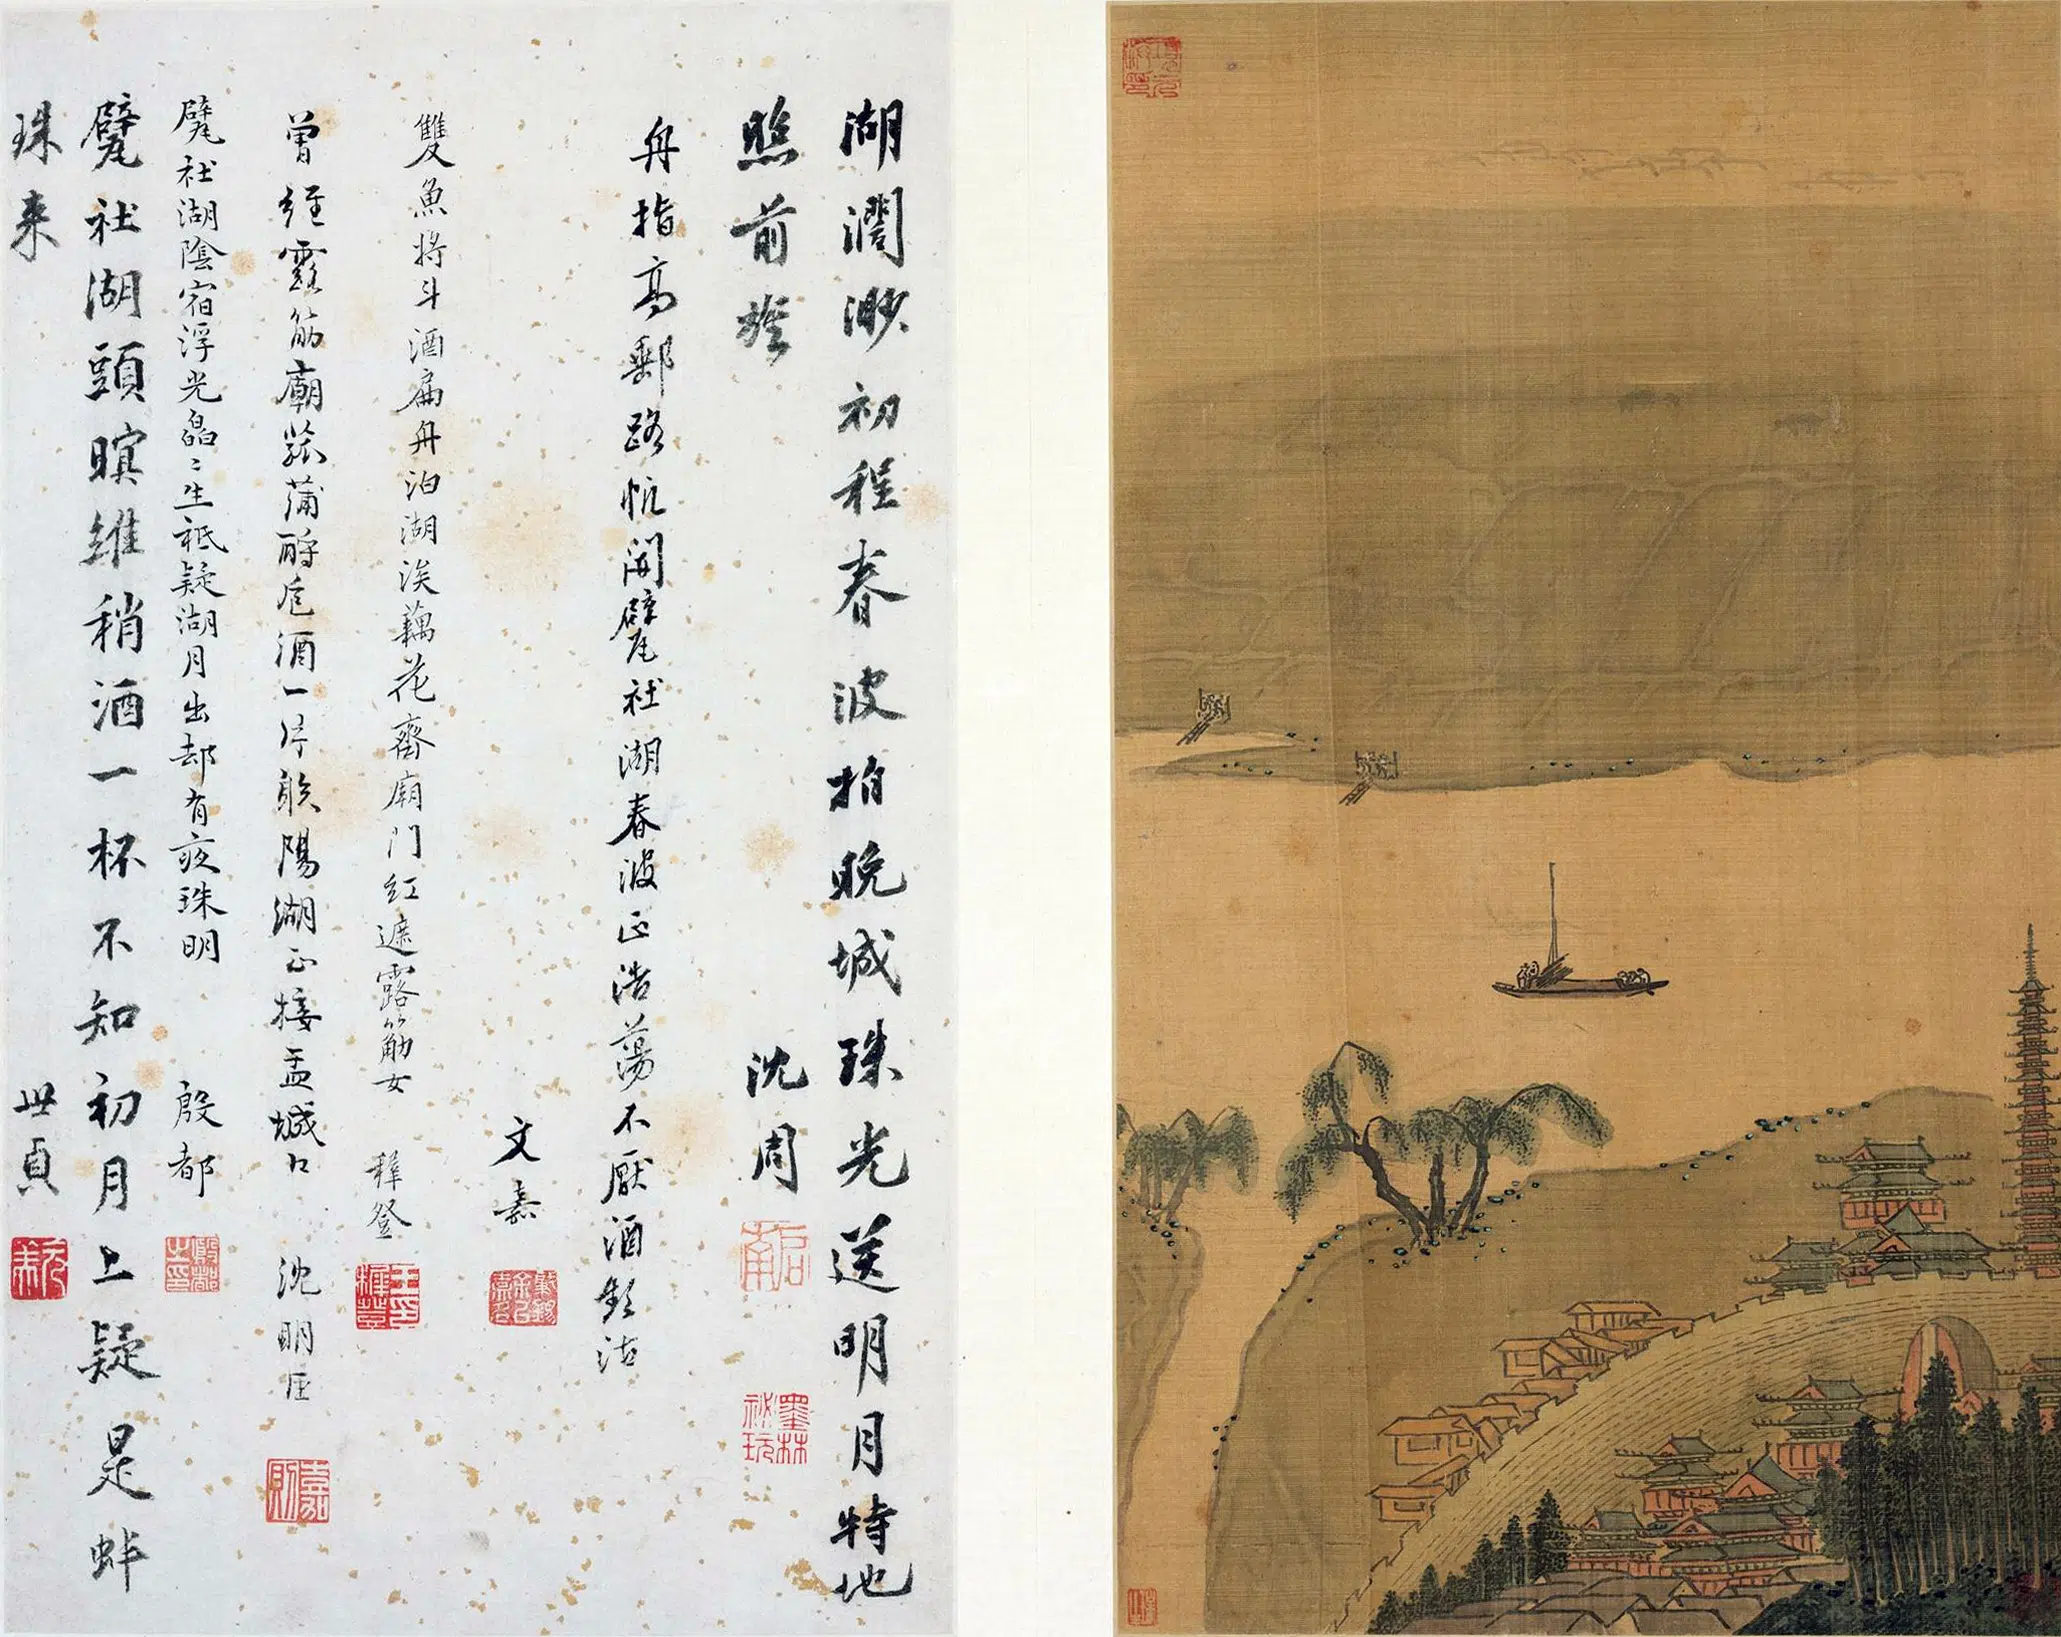 湖濶渺初程春波拍晚城珠光送明月特地
照前旌
沈周
舟指高郵路忻開甓社湖春波正浩蕩不厭酒頻沽
文嘉
雙魚將斗酒扁舟泊湖涘藕花齊廟門紅遮露筋女
穉登
曾經露筋廟菰蒲酹卮酒一片斜陽湖正接盂城口
沈明臣
甓社湖陰宿浮光皛〻生祗疑湖月出却有夜珠明
殷都
甓社湖頭暝維稍酒一杯不知初月上疑是蚌
珠来
世貞
墨林
祕玩